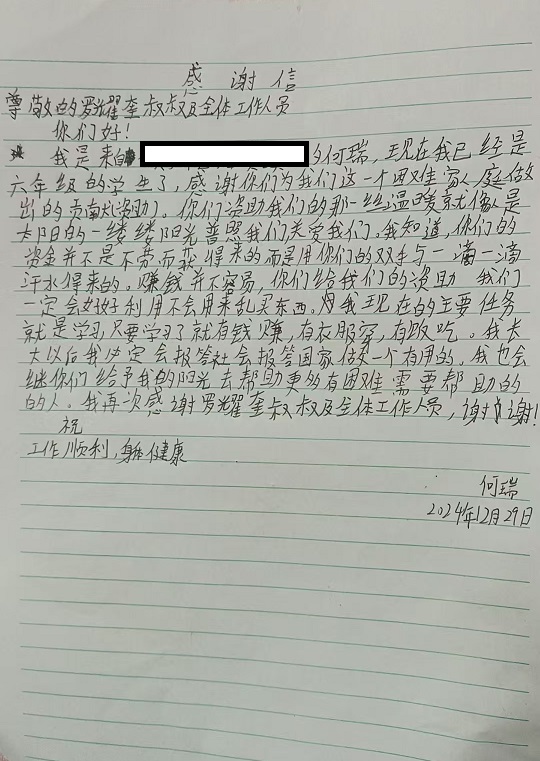 感谢信
尊敬的罗耀奎叔叔及全体工作人员
你们好!
我是来自的何瑞,现在我已经是
六年级的学生了,感谢你们为我们这一个困难家庭做
出的贡献资助了。你们资助我们的那一丝温暖就像是
太阳的一缕缕阳光普照我们关爱我们。我知道,你们的
资金并不是不劳而获得来的而是用你们的双手与一滴一滴
汗水得来的。赚钱并不容易,你们给我们的资助 我们
一定会好好利用不会用来乱买东西。我现在的主要任务
就是学习,只要学习了就有钱赚,有衣服穿,有饭吃。我长
大以后我必定会报答社会报答国家做一个有用的,我也会
继你们给予我的阳光去帮助更多有困难需要帮助的
的人。我再次感谢罗耀奎叔叔及全体工作人员,谢谢!
祝
工作顺利,身体健康
何瑞
2024年12月29日